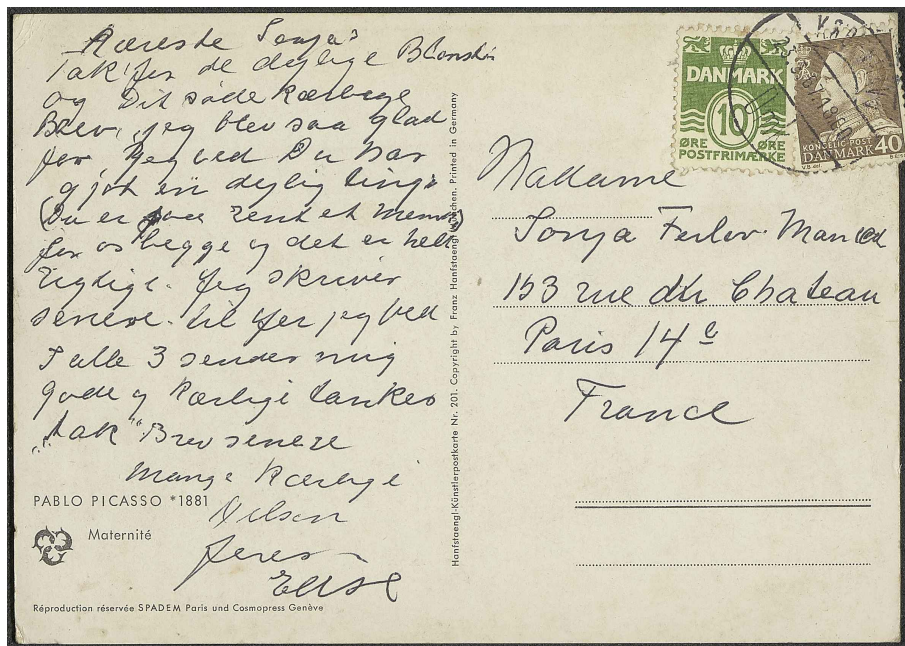 Kæreste Sonja?
Tak for de dejlige Blomster
og Dit søde kærlige
Brev, jeg blev saa glad
for jeg ved Du har
gjort en dejlig ting.
(Du er
for os begge og det er helt
rigtigt. Jeg skriver
senere. til jer jeg ved
I alle 3 sender mig
gode og kærlige tanker
"tak" Brev senere
Mange kærlige
Hilsen
Jeres
Elise
PABLO PICASSO *1881
Maternité
Réproduction réservée SPADEM Paris und Cosmopress Genève
Hanfstaengl-Künstlerpostkarte Nr. 201. Copyright by Franz Hanfstaengl München. Printed in Germany
DANMARK
10
ØRE ØRE
POSTFRIMÆRKE
KONGELIG POST
DANMARK 40
Madame
Sonja Ferlov Mancoba
153 rue du Chateau
Paris 14e
France